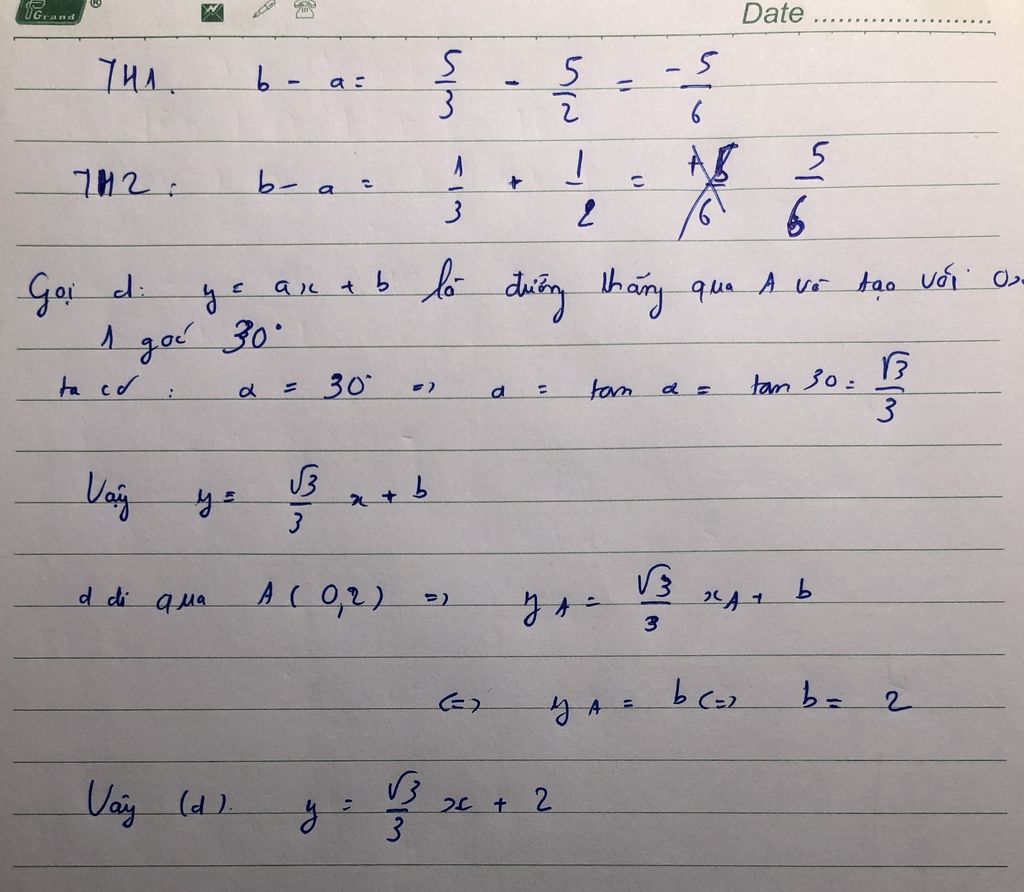 Grand ® Date ......................
TH1. b - a = 5/3 - 5/2 = -5/6
TH2: b - a = 1/3 + 1/2 = 5/6
Gọi d: y = ax + b là đường thẳng qua A và tạo với Ox
1 góc 30°
ta có: α = 30° => a = tan α = tan 30 = √3/3
Vậy y = √3/3 x + b
d đi qua A(0,2) => y_A = √3/3 x_A + b
<=> y_A = b <=> b = 2
Vậy (d). y = √3/3 x + 2